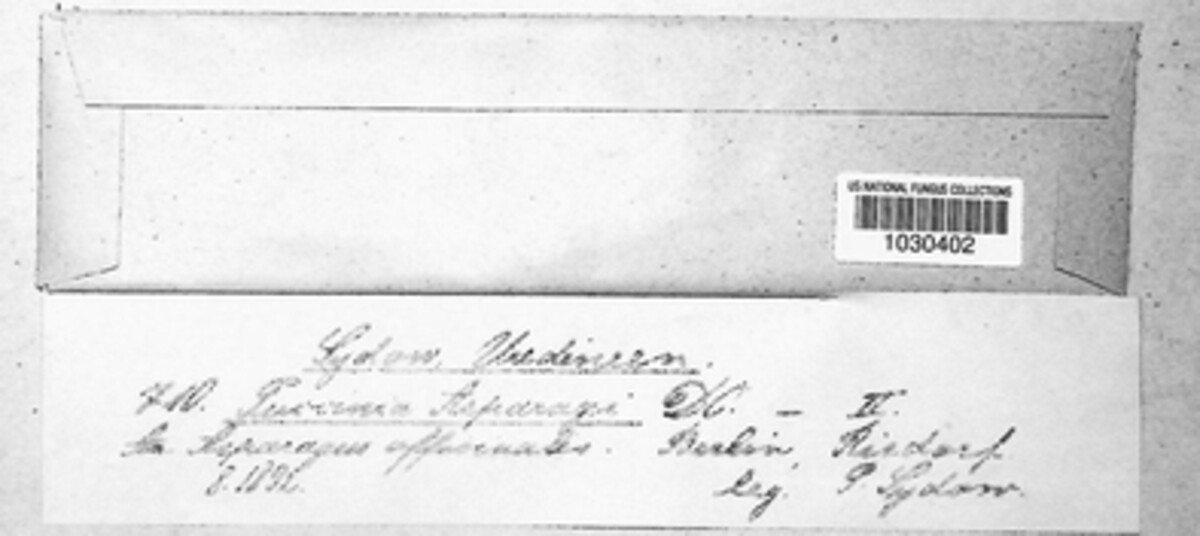 US NATIONAL FUNGUS COLLECTIONS
1030402
Sydow, Uredineen.
710. Puccinia Asparagi DC. — II.
In Asparagus officinalis. Berlin, Rixdorf
8. 1892. leg. P. Sydow.